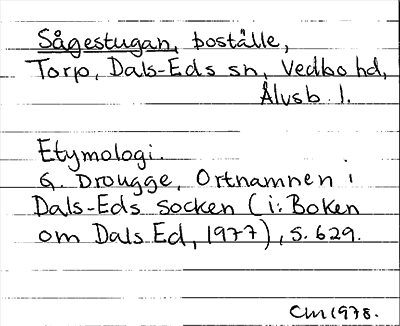 Sågestugan, boställe,
Torp, Dals-Eds sn, Vedbo hd,
Älvsb. l.
Etymologi.
G. Drougge, Ortnamnen i
Dals-Eds socken (i: Boken
om Dals Ed, 1977), s. 629.
CM 1978.